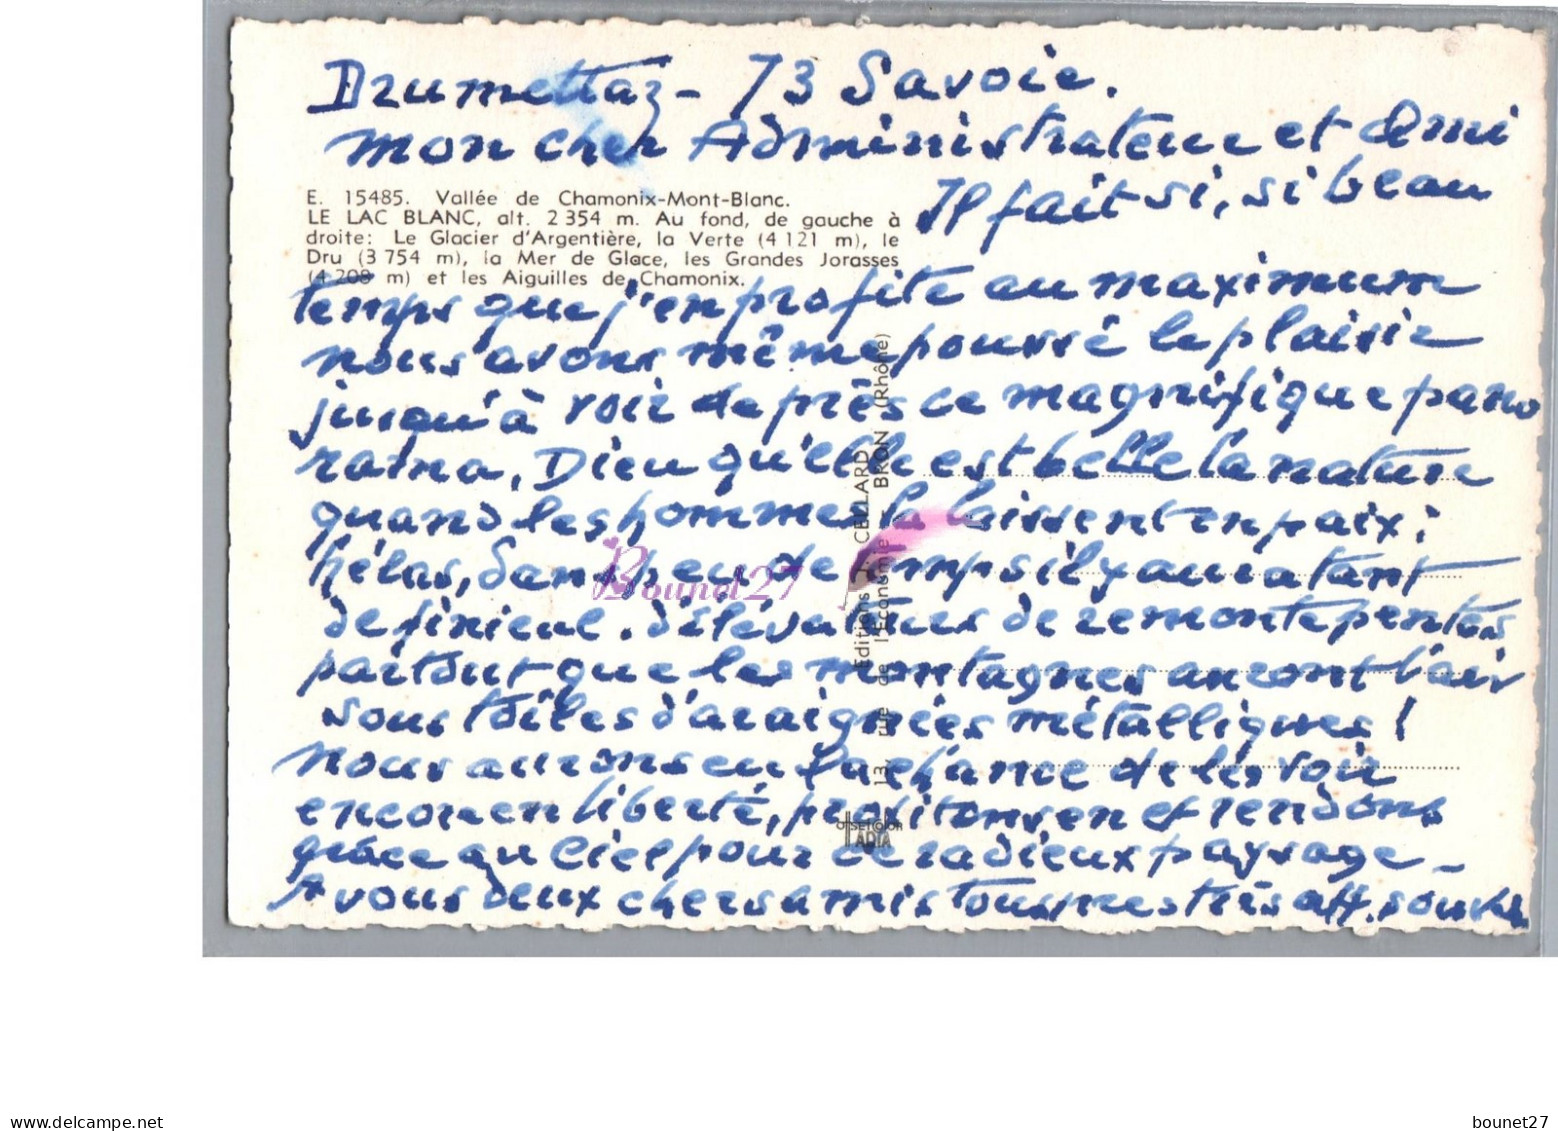 Drumettaz - 73 Savoie.
mon cher Administrateur et Ami
E. 15485. Vallée de Chamonix-Mont-Blanc.
LE LAC BLANC, alt. 2 354 m. Au fond, de gauche à
droite: Le Glacier d'Argentière, la Verte (4 121 m), le
Dru (3 754 m), la Mer de Glace, les Grandes Jorasses
(4 208 m) et les Aiguilles de Chamonix.
Il fait si, si beau
temps que j'en profite au maximum
nous avons même poussé le plaisir
jusqu'à voir de près ce magnifique pano
rama, Dieu qu'elle est belle la nature
quand les hommes la laissent en paix !
hélas, dans peu de temps il y aura tant
de finicul. d'élévateurs de remonte pentes
partout que les montagnes auront l'air
sous toiles d'araignées métalliques !
Nous aurons eu la chance de les voir
encore en liberté, profitons en et rendons
grâce au Ciel pour ce radieux paysage -
A vous deux chers amis tous mes très aff. souv
Editions J. CELLARD
13, rue de l'Economie BRON (Rhône)
offsetcolor
IADIA
Bounet27
https://www.delcampe.net
bounet27